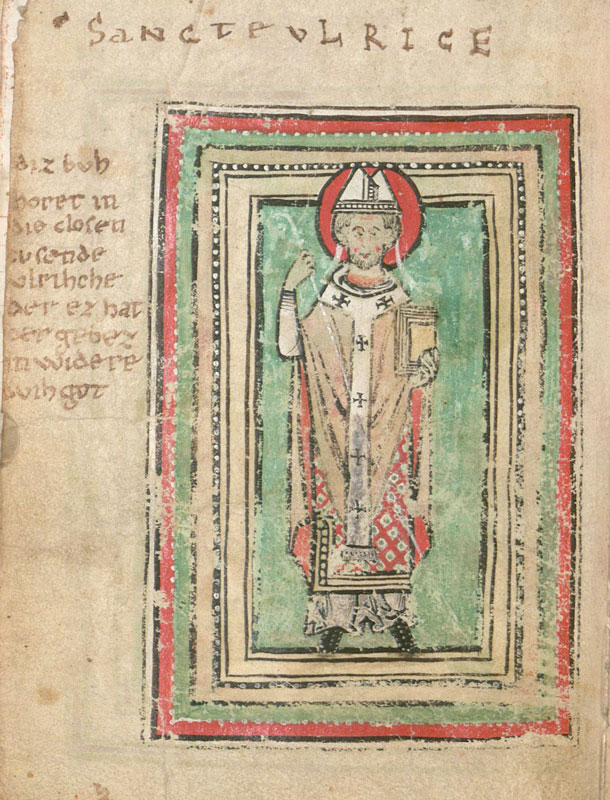 SANCTE ULRICE
diz buh
horet in
die closen
zu sende
ulrihche
der ez hat
der gebez
in widere
durh got